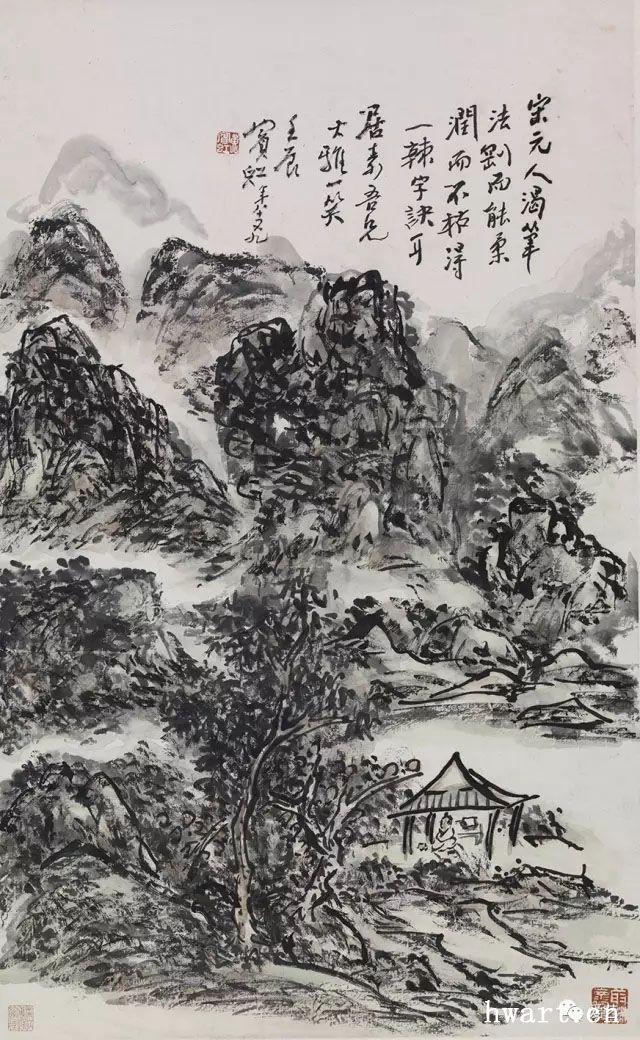 宋元人渴筆
法剛而能柔
潤而不枯得
一辣字訣耳
居素吾兄
大雅一笑
壬辰
賓虹年八十九
hwart.cn